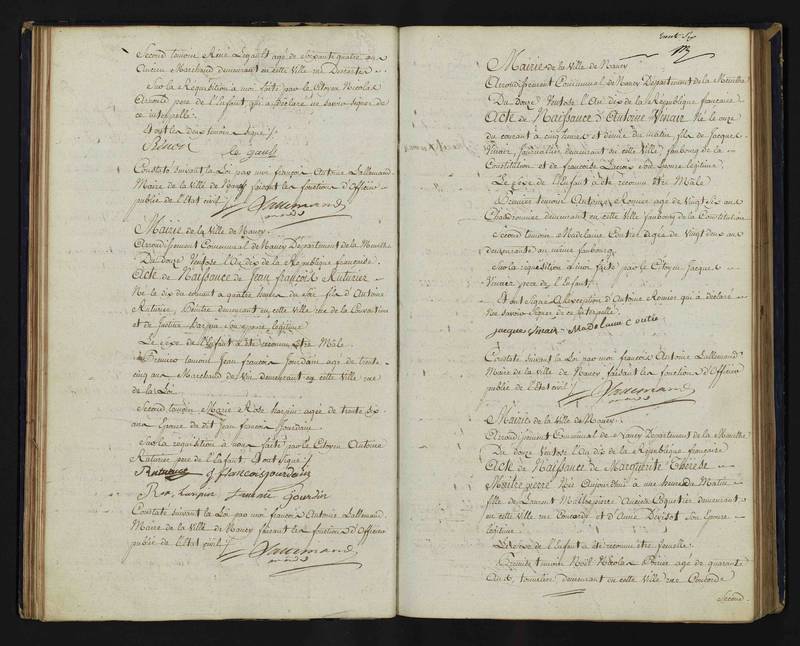 Second temoin René Legault agé de soixante quatre ans
Ancien Marchand demeurant en cette Ville rue Descartes
Sur la Requisition à moi faite par le Citoyen Nicolas
pere de l'enfant qui a déclaré ne savoir signer de
ce interpellé.
Et ont les deux temoins Signé
Constaté suivant la Loi par moi françois Antoine Lallemand
Maire de la Ville de Nancy faisant les fonctions d'Officier
public de l'Etat civil
Lallemand
Mairie de la Ville de Nancy.
Arrondissement Communal de Nancy Departement de la Meurthe
Du douze Ventose l'An dix de la République française.
Acte de Naissance de Jean françois Ruturier
Né le dix du courant à quatre heures du Soir fils d'Antoine
Ruturier, demeurant en cette Ville rue de la
et de Justine son epouse légitime
Le sexe de l'Enfant a été reconnu être Mâle.
Premier temoin Jean françois Jourdain agé de trente
cinq ans Marchand de Vin demeurant en cette Ville rue
de la Loi
Second temoin Marie Rose agée de trente six
ans Epouse du dit Jean françois Jourdain
Sur la requisition à nous faite par le Citoyen Antoine
Ruturier pere de l'enfant. Et ont Signé
Ruturier J françois jourdain
Constaté suivant la Loi par moi françois Antoine Lallemand
Maire de la Ville de Nancy faisant les fonctions d'Officier
public de l'Etat civil
Lallemand
trente Six
Mairie de la Ville de Nancy
Arrondissement Communal de Nancy Departement de la Meurthe
Du douze Ventose l'An dix de la République francaise
Acte de Naissance d'Antoine Vinair Né le onze
du courant à cinq heures et demie du matin fils de Jacques
Vinair, Journalier demeurant en cette Ville faubourg de la
Constitution et de francoise son Epouse légitime.
Le sexe de l'Enfant a été reconnu être Mâle
Premier temoin Antoine Romier agé de Vingt six ans
Charbonnier demeurant en cette Ville faubourg de la Constitution
Second temoin Madelaine Coutier agée de Vingt deux ans
demeurante au même faubourg
Sur la requisition à moi faite par le Citoyen Jacques
Vinair pere de l'enfant
Et ont Signé à l'exception d'Antoine Romier qui a déclaré
Ne savoir Signer de ce interpellé
jacque vinair Madelaine Coutié
Constaté suivant la Loi par moi françois Antoine Lallemand
Maire de la Ville de Nancy faisant les fonctions d'Officier
public de l'Etat civil
Lallemand
Mairie de la Ville de Nancy.
Arrondissement Communal de Nancy Departement de la Meurthe
Du douze Ventose l'An dix de la République francaise
Acte de Naissance de Marguerite Thérèse
Maitrepierre Née Aujourd'hui à une heure du Matin
fille de Laurent Maitrepierre Ancien Coquetier demeurant
en cette Ville rue Concorde et d'Anne son Epouse
légitime
Le Sexe de l'enfant a été reconnu être femelle.
Premier temoin Noel Nicolas Poirier agé de quarante
Ans, demeurant en cette Ville rue Concorde
Second